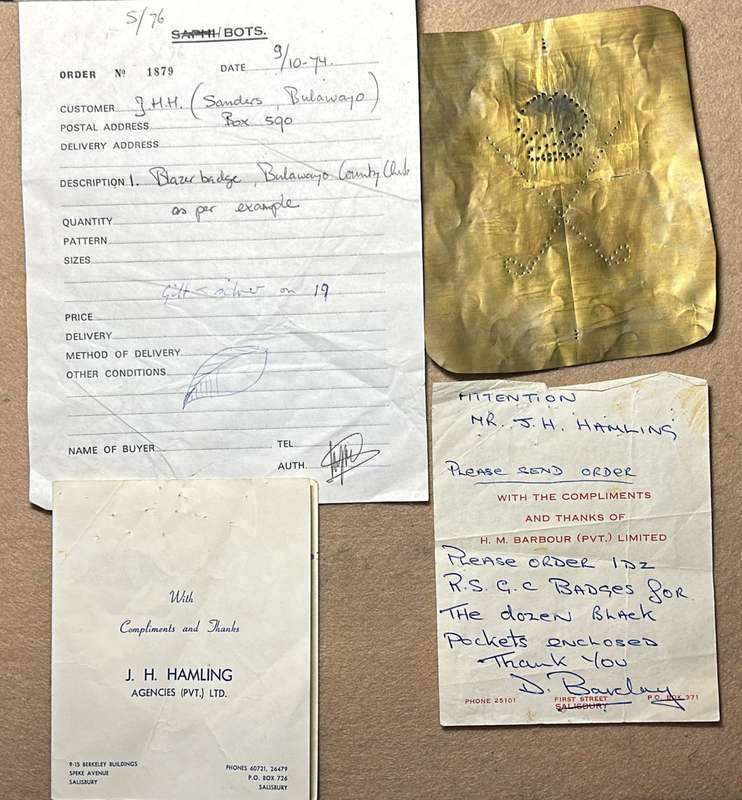 5/76
SAPHI/BOTS.
ORDER Nº 1879 DATE 9/10-74.
CUSTOMER J.H.H. (Sanders, Bulawayo)
POSTAL ADDRESS Box 590
DELIVERY ADDRESS
DESCRIPTION 1. Blazer badge, Bulawayo County Club
as per example
QUANTITY
PATTERN
SIZES
Gilt & silver on 19
PRICE
DELIVERY
METHOD OF DELIVERY
OTHER CONDITIONS
NAME OF BUYER TEL.
AUTH.
ATTENTION
MR. J. H. HAMLING
PLEASE SEND ORDER
WITH THE COMPLIMENTS
AND THANKS OF
H. M. BARBOUR (PVT.) LIMITED
PLEASE ORDER 1DZ
R.S.G.C BADGES FOR
THE dOZEN BLACK
POCKETS ENCLOSED
THANK YOU
D. Barclay
PHONE 25101 FIRST STREET P.O. BOX 371
SALISBURY
With
Compliments and Thanks
J. H. HAMLING
AGENCIES (PVT.) LTD.
9-15 BERKELEY BUILDINGS
SPEKE AVENUE
SALISBURY
PHONES 60721, 26479
P.O. BOX 726
SALISBURY